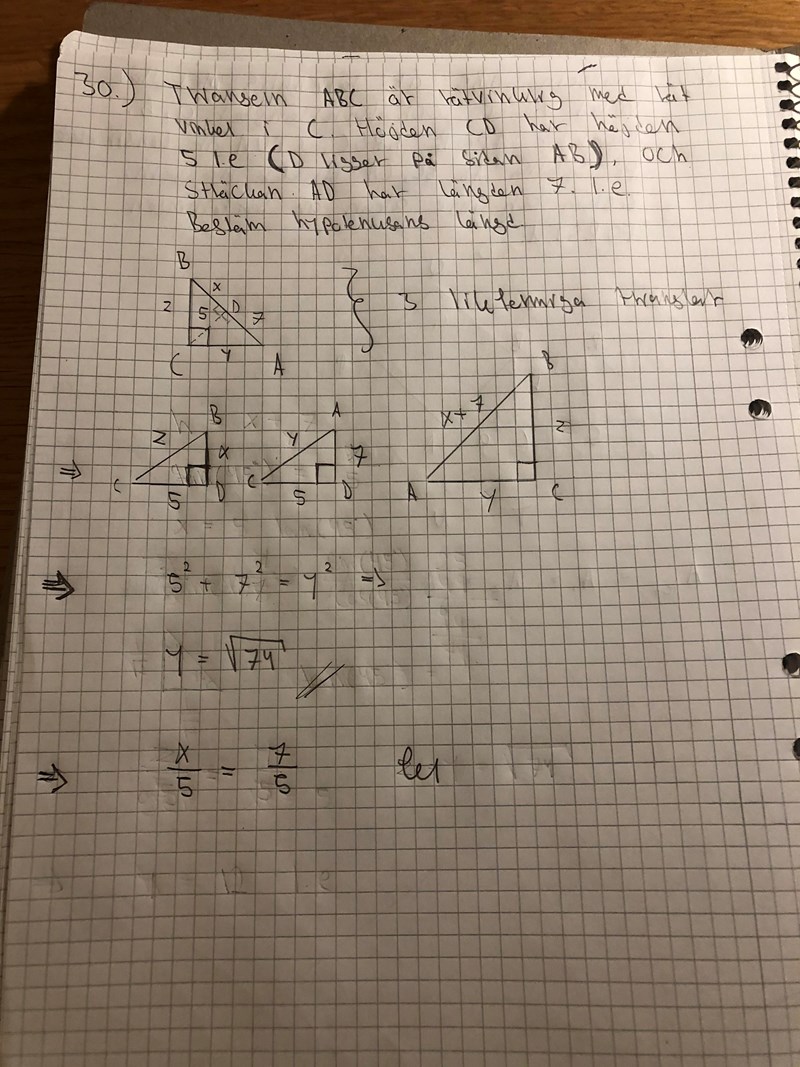 30.) Triangeln ABC är rätvinklig med rät
vinkel i C. Höjden CD har höjden
5 l.e (D ligger på sidan AB), och
sträckan AD har längden 7. l.e.
Bestäm hypotenusans längd
B
x
z 5 D 7
C y A
} 3 likformiga trianglar
⇒
B
z x
C 5 D
A
y 7
C 5 D
B
x+7 z
A y C
⇒ 5² + 7² = y² =>
y = √74
⇒ x/5 = 7/5